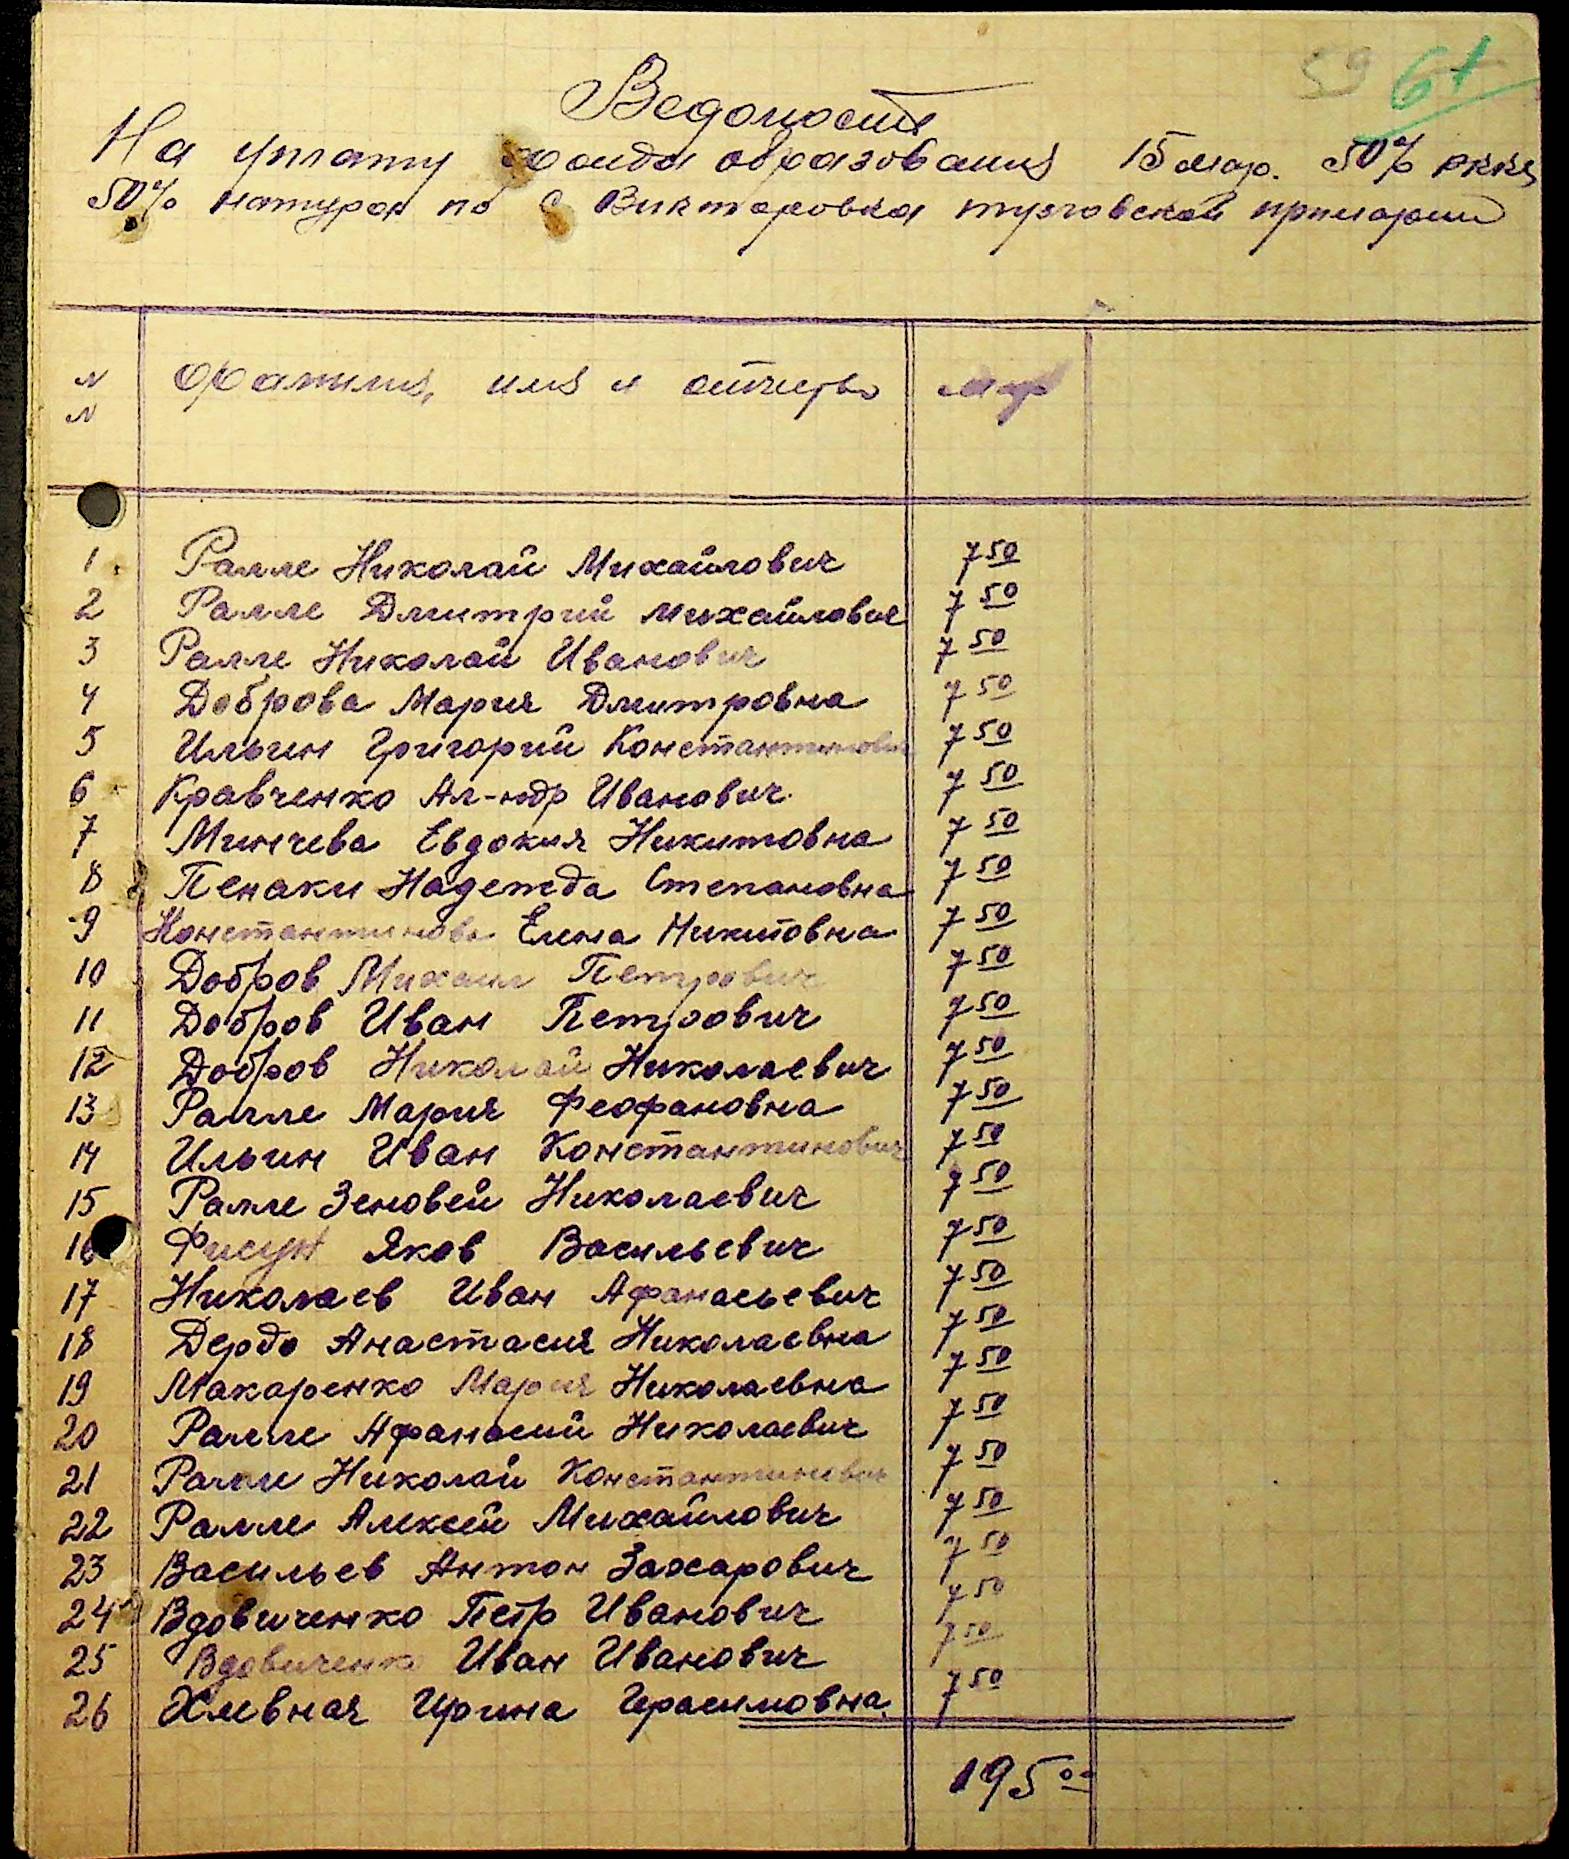 59 61
Ведомость
На уплату фонда образования 15 мар. 50% ркке
50% натурой по с Викторовка тузловской примарии
N
N
Фамилия, имя и отчество мар
1 Ралле Николай Михайлович 7 50
2 Ралле Дмитрий Михайлович 7 50
3 Ралле Николай Иванович 7 50
4 Доброва Мария Дмитровна 7 50
5 Ильин Григорий Константинович 7 50
6 Кравченко Ал-ндр Иванович 7 50
7 Минчева Евдокия Никитовна 7 50
8 Пенаки Надежда Степановна 7 50
9 Константинова Елена Никитовна 7 50
10 Добров Михаил Петрович 7 50
11 Добров Иван Петрович 7 50
12 Добров Николай Николаевич 7 50
13 Ралле Мария Феофановна 7 50
14 Ильин Иван Константинович 7 50
15 Ралле Зеновей Николаевич 7 50
16 Фисун Яков Васильевич 7 50
17 Николаев Иван Афанасьевич 7 50
18 Дердо Анастасия Николаевна 7 50
19 Макаренко Мария Николаевна 7 50
20 Ралле Афанасий Николаевич 7 50
21 Ралли Николай Константинович 7 50
22 Ралле Алексей Михайлович 7 50
23 Васильев Антон Захарович 7 50
24 Вдовиченко Петр Иванович 7 50
25 Вдовиченко Иван Иванович 7 50
26 Хлевная Ирина Герасимовна. 7 50
195 00